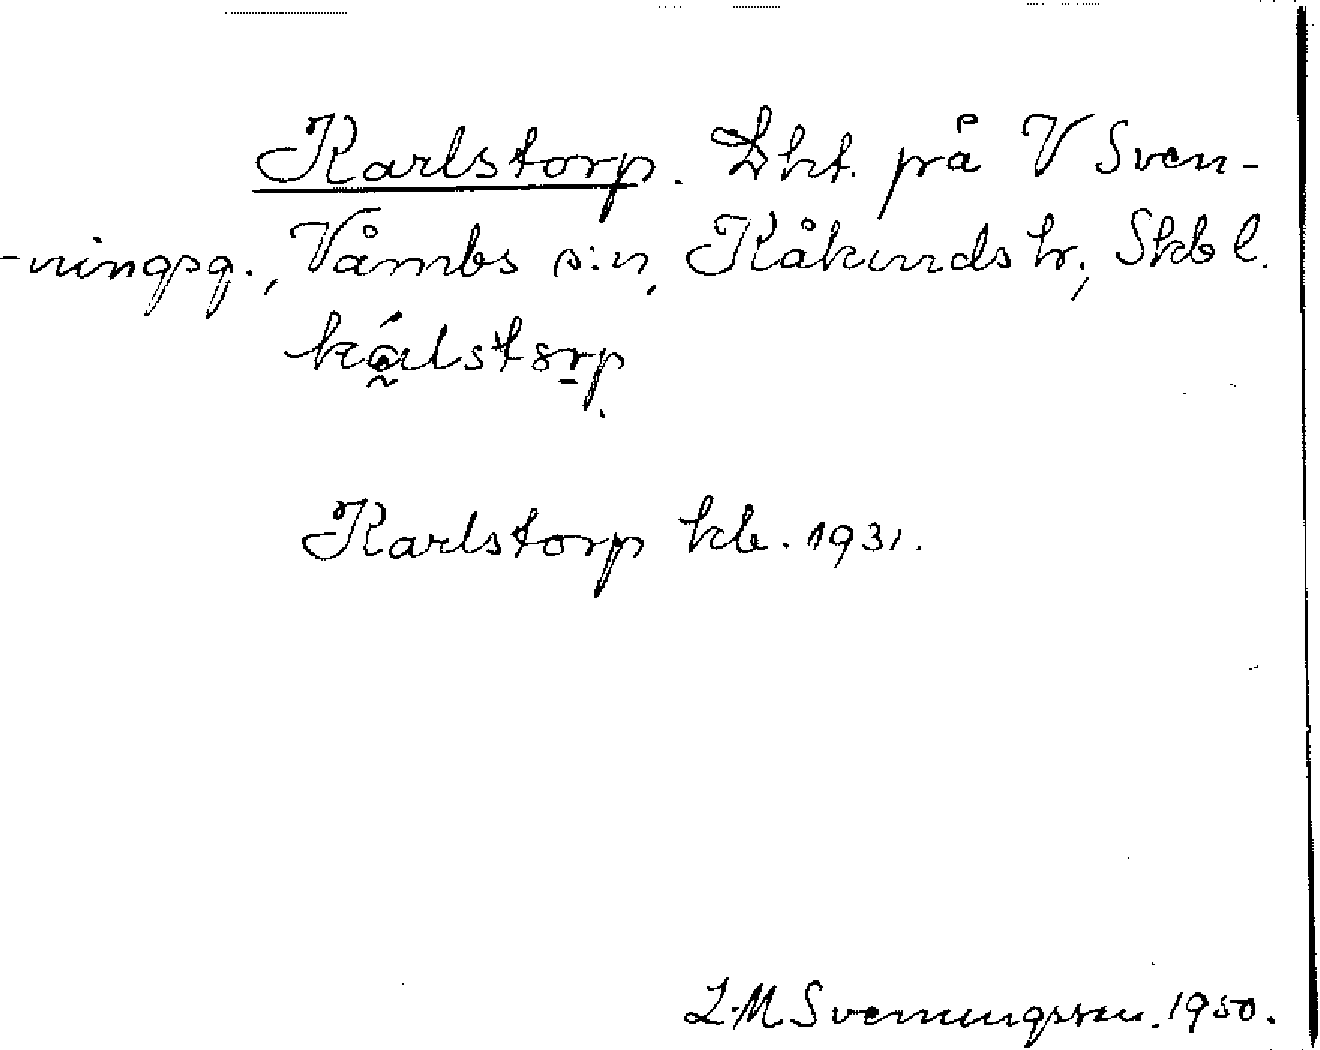 Karlstorp. Lht. på V Sven-
-ningsg., Våmbs s:n, Kåkinds hr, Skbl.
Karlstorp kb. 1931.
L.M. Svenungsson. 1950.